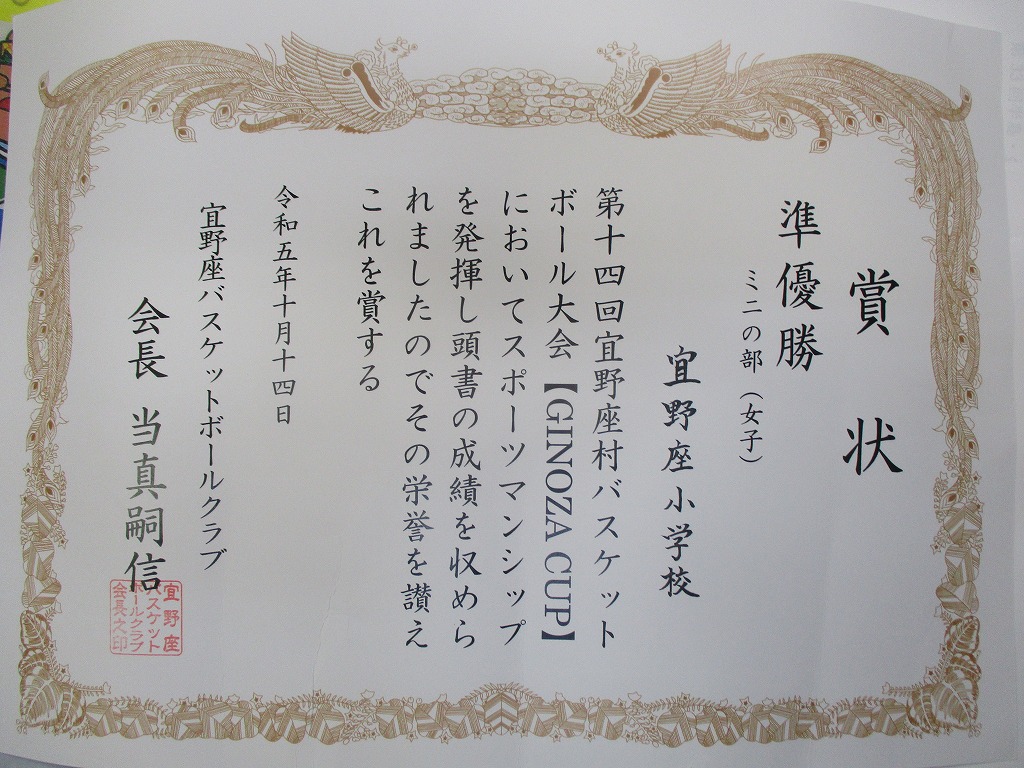 賞状
準優勝
ミニの部（女子）
宜野座小学校
第十四回宜野座村バスケット
ボール大会【GINOZA CUP】
においてスポーツマンシップ
を発揮し頭書の成績を収めら
れましたのでその栄誉を讃え
これを賞する
令和五年十月十四日
宜野座バスケットボールクラブ
会長 当真嗣信
宜野座
バスケット
ボールクラブ
会長之印